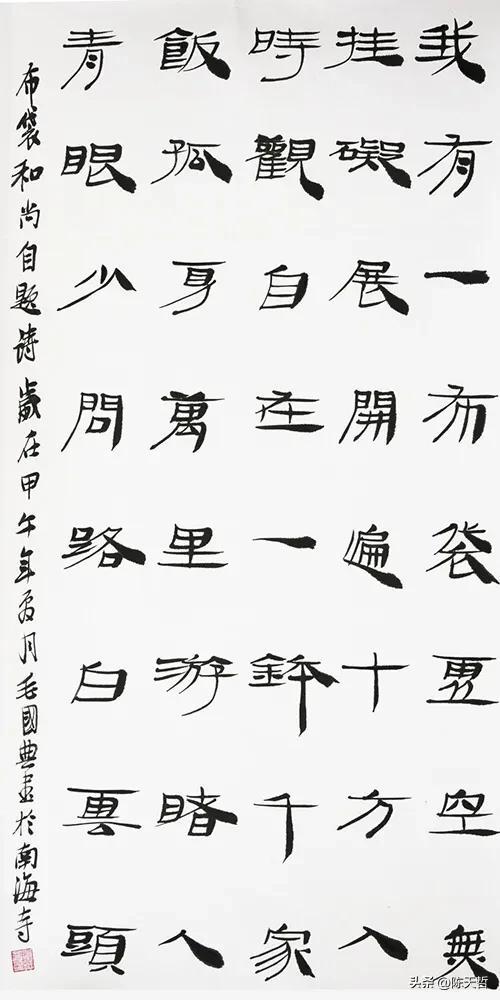 我有一布袋虛空無
挂礙展開遍十方入
時觀自在一鉢千家
飯孤身萬里游睹人
青眼少問路白雲頭
布袋和尚自题诗歲在甲午年夏月毛國典書於南海寺
头条 @陈天哲